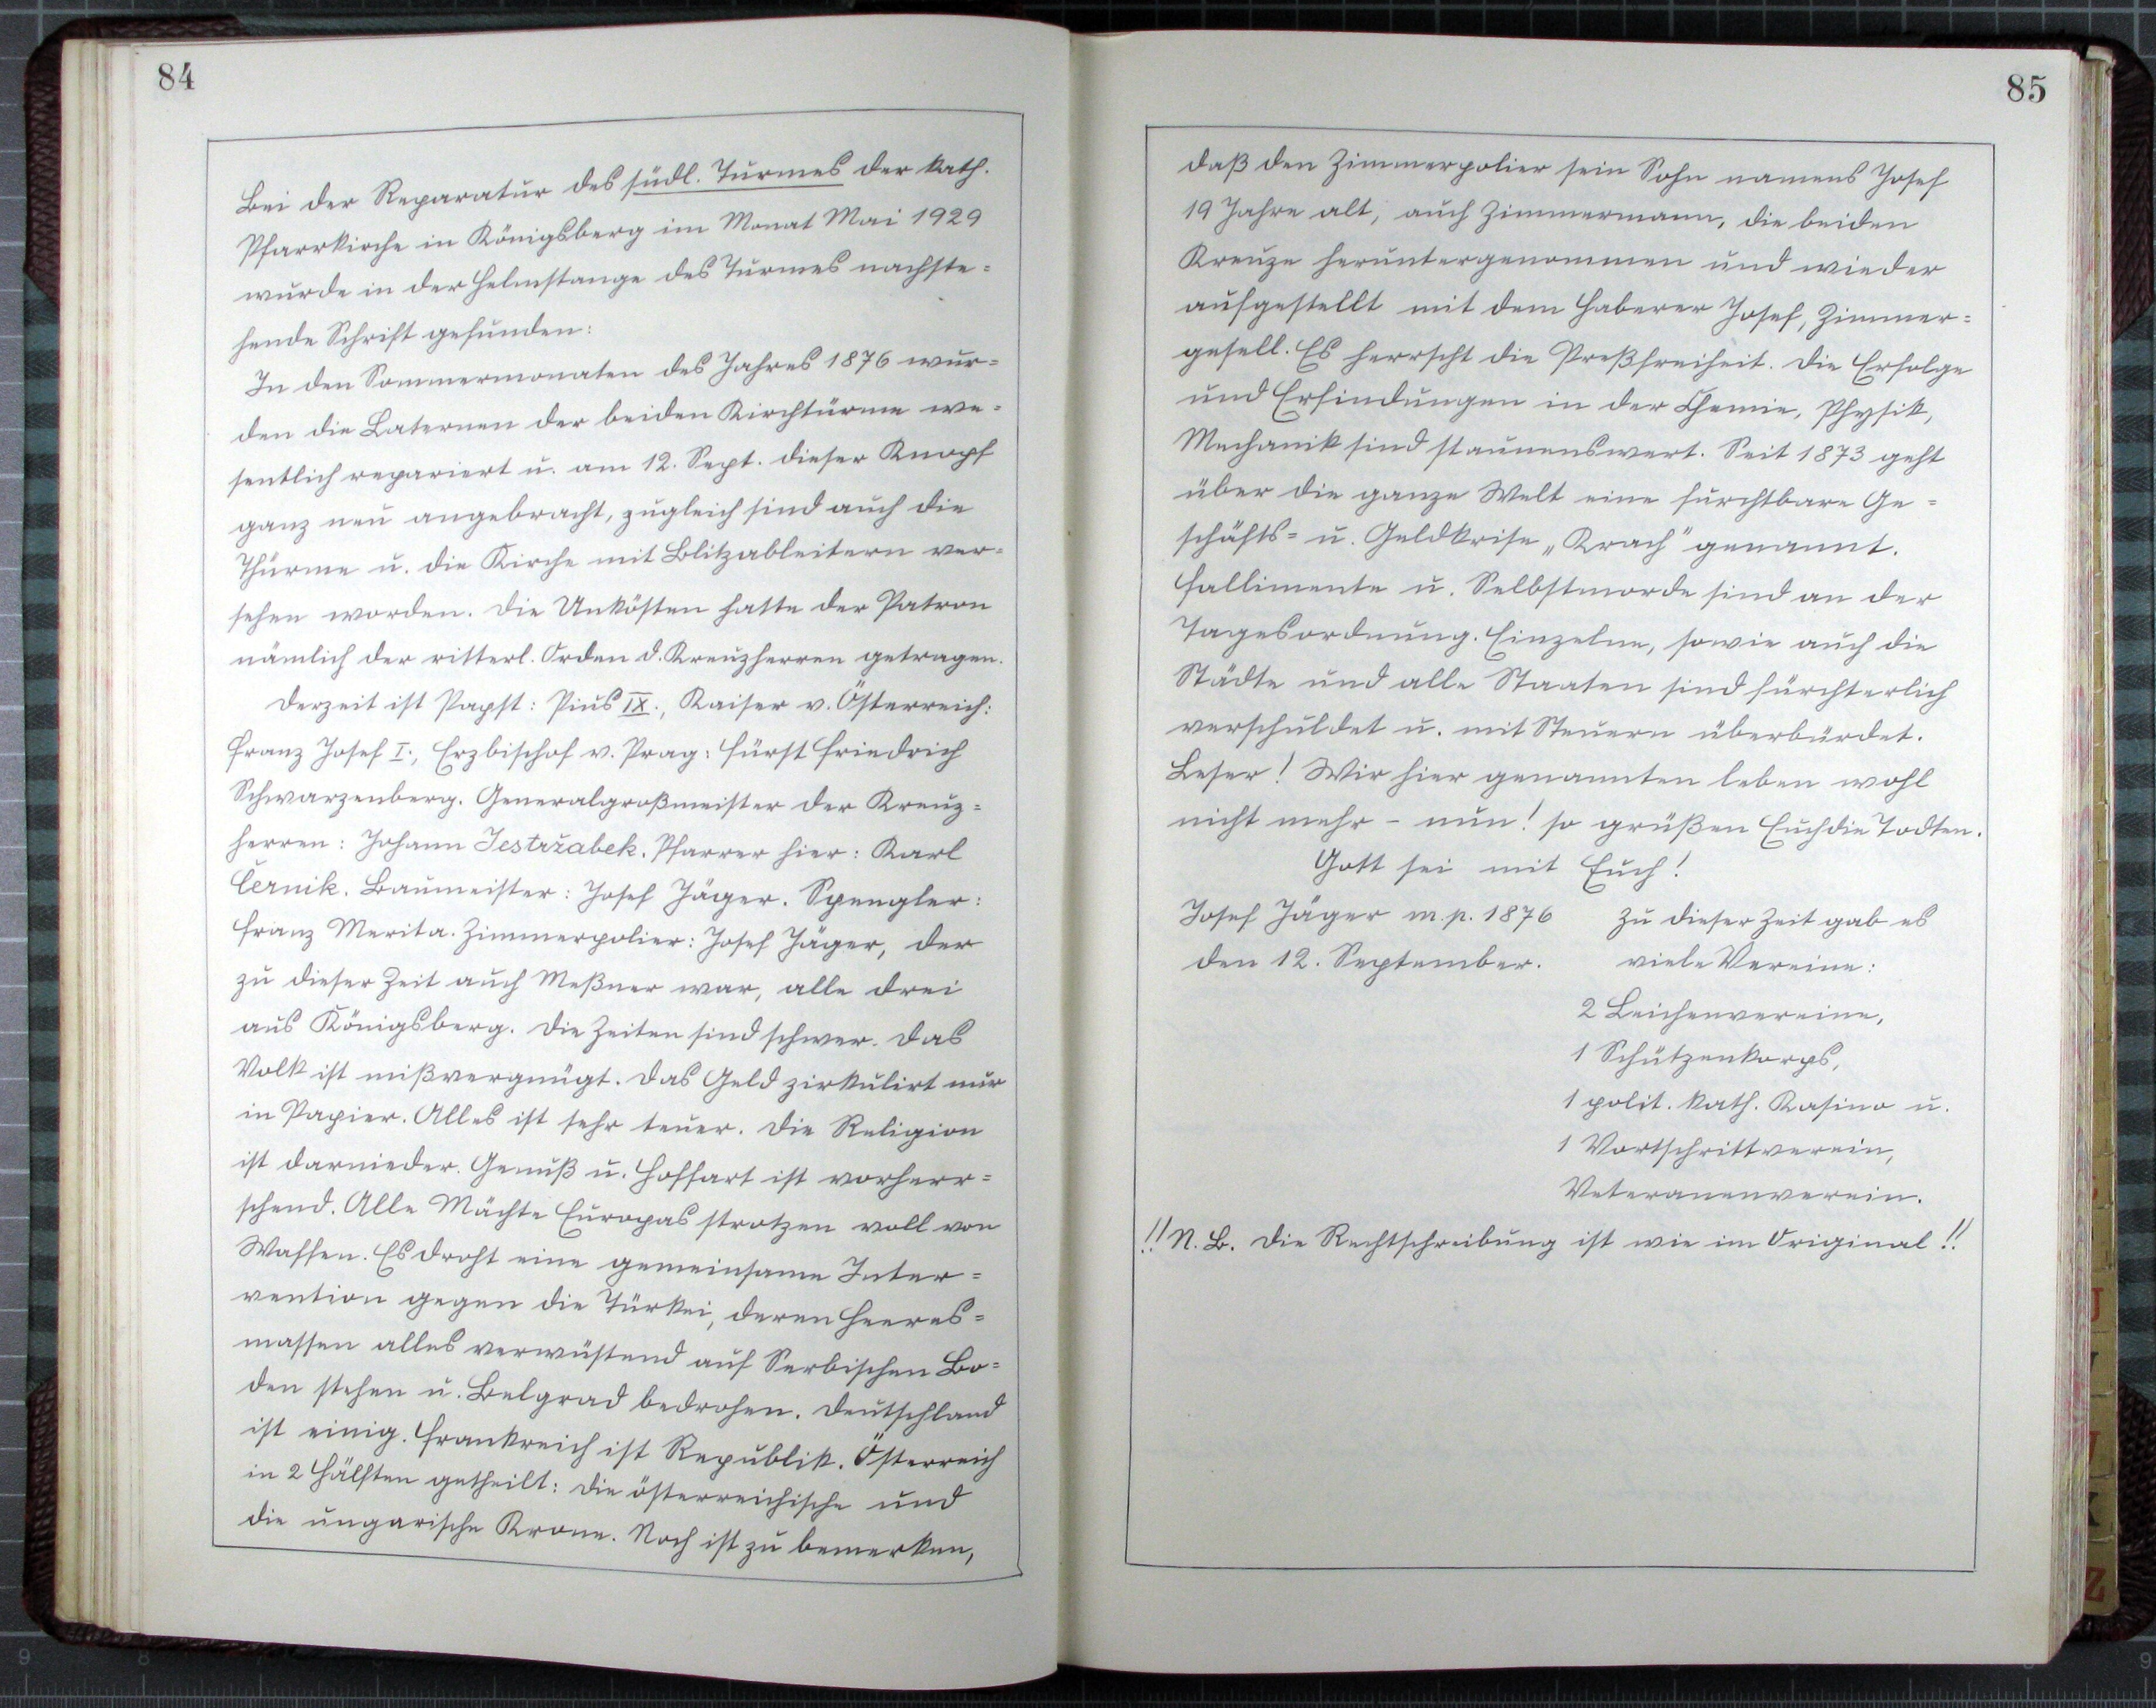 84
Bei der Reparatur des südl. Turmes der kath.
Pfarrkirche in Königsberg im Monat Mai 1929
wurde in der Helmstange des Turmes nachste=
hende Schrift gefunden:
In den Sommermonaten des Jahres 1876 wur=
den die Laternen der beiden Kirchtürme we=
sentlich repariert u. am 12. Sept. dieser Knopf
ganz neu angebracht, zugleich sind auch die
Thürme u. die Kirche mit Blitzableitern ver=
sehen worden. Die Unkösten hatte der Patron
nämlich der ritterl. Orden d. Kreuzherren getragen.
Derzeit ist Papst: Pius IX., Kaiser v. Österreich:
Franz Josef I., Erzbischof v. Prag: Fürst Friedrich
Schwarzenberg. Generalgroßmeister der Kreuz=
herren: Johann Jestržabek. Pfarrer hier: Karl
Černik. Baumeister: Josef Jäger. Spengler:
Franz Merita. Zimmerpolier: Josef Jäger, der
zu dieser Zeit auch Meßner war, alle drei
aus Königsberg. Die Zeiten sind schwer. Das
Volk ist mißvergnügt. Das Geld zirkulirt nur
in Papier. Alles ist sehr teuer. Die Religion
ist darnieder. Genuß u. Hoffart ist vorherr=
schend. Alle Mächte Europas strotzen voll von
Waffen. Es droht eine gemeinsame Inter=
vention gegen die Türkei, deren Heeres=
massen alles verwüstend auf Serbischen Bo=
den stehen u. Belgrad bedrohen. Deutschland
ist einig. Frankreich ist Republik. Österreich
in 2 Hälften getheilt: Die österreichische und
die ungarische Krone. Noch ist zu bemerken,
85
daß den Zimmerpolier sein Sohn namens Josef
19 Jahre alt, auch Zimmermann, die beiden
Kreuze heruntergenommen und wieder
aufgestellt mit dem Haberer Josef, Zimmer=
gesell. Es herrscht die Preßfreiheit. Die Erfolge
und Erfindungen in der Chemie, Physik,
Mechanik sind staunenswert. Seit 1873 geht
über die ganze Welt eine furchtbare Ge=
schäfts= u. Geldkrise „Krach" genannt.
Fallimente u. Selbstmorde sind an der
Tagesordnung. Einzelne, sowie auch die
Städte und alle Staaten sind fürchterlich
verschuldet u. mit Steuern überbürdet.
Leser! Wir hier genannten leben wohl
nicht mehr - nun! so grüßen Euch die Todten.
Gott sei mit Euch!
Josef Jäger m. p. 1876
den 12. September.
Zu dieser Zeit gab es
viele Vereine:
2 Leichenvereine,
1 Schützenkorps,
1 polit. kath. Kasino u.
1 Vortschrittverein,
Veteranenverein.
!! N. B. Die Rechtschreibung ist wie im Original !!